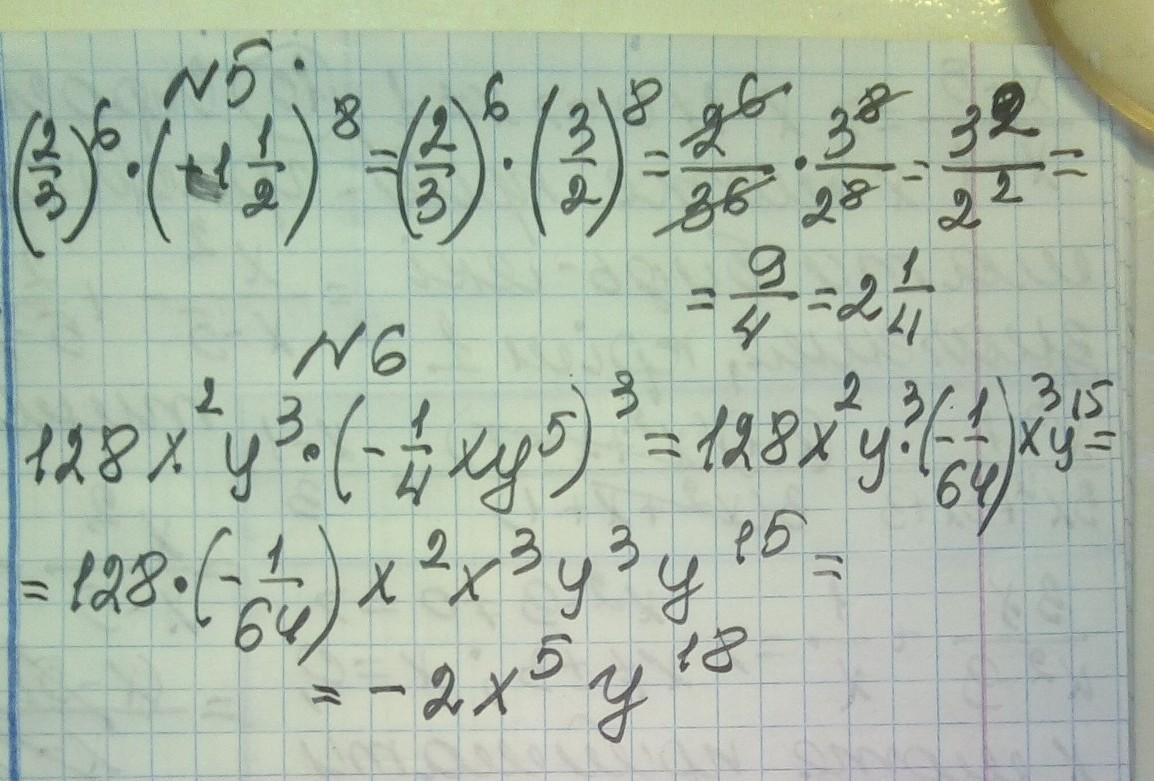 №5.
(2/3)^6 · (1 1/2)^8 = (2/3)^6 · (3/2)^8 = 2^6/3^6 · 3^8/2^8 = 3^2/2^2 =
= 9/4 = 2 1/4
№6
128x^2y^3 · (-1/4 xy^5)^3 = 128x^2y^3 · (-1/64)x^3y^15 =
= 128 · (-1/64) x^2x^3y^3y^15 =
= -2x^5y^18